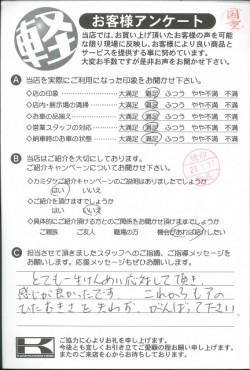 軽
お客様アンケート
当店では、お買い上げ頂いたお客様の声を可能
な限り現場に反映し、お客様により良い商品と
サービスを提供する事に努めています。
大変お手数ですが是非お声をお聞かせ下さい。
A 当店を実際にご利用になった印象をお聞かせ下さい。
◇店の印象 大満足 満足 ふつう やや不満 不満
◇店内・展示場の清掃 大満足 満足 ふつう やや不満 不満
◇お車の品揃え 大満足 満足 ふつう やや不満 不満
◇営業スタッフの対応 大満足 満足 ふつう やや不満 不満
◇納車時のお車の状態 大満足 満足 ふつう やや不満 不満
B 当店はご紹介を大切にしております。
ご紹介キャンペーンについてお聞かせ下さい。
◇カミタケご紹介キャンペーンのご説明はありましたでしょうか
はい いいえ
◇ご紹介を頂けますでしょうか
はい いいえ
◇具体的にご紹介頂ける方とのご関係をお聞かせ頂けますでしょうか
ご親族 ご友人 職場の方 機会があれば紹介したい
C 担当させて頂きましたスタッフへのご指摘、ご指導メッセージを
お願いします。応援メッセージもぜひお願いします。
とても一生けんめい応対をして頂き、
感じが良かったです。これからもその
ひたむきさを失わず、がんばって下さい。
ご協力に心よりお礼を申し上げます。
今後とも宜しくお引き立てご愛顧の程お願い申し上げます。
またのご来店を心からお待ちしております。